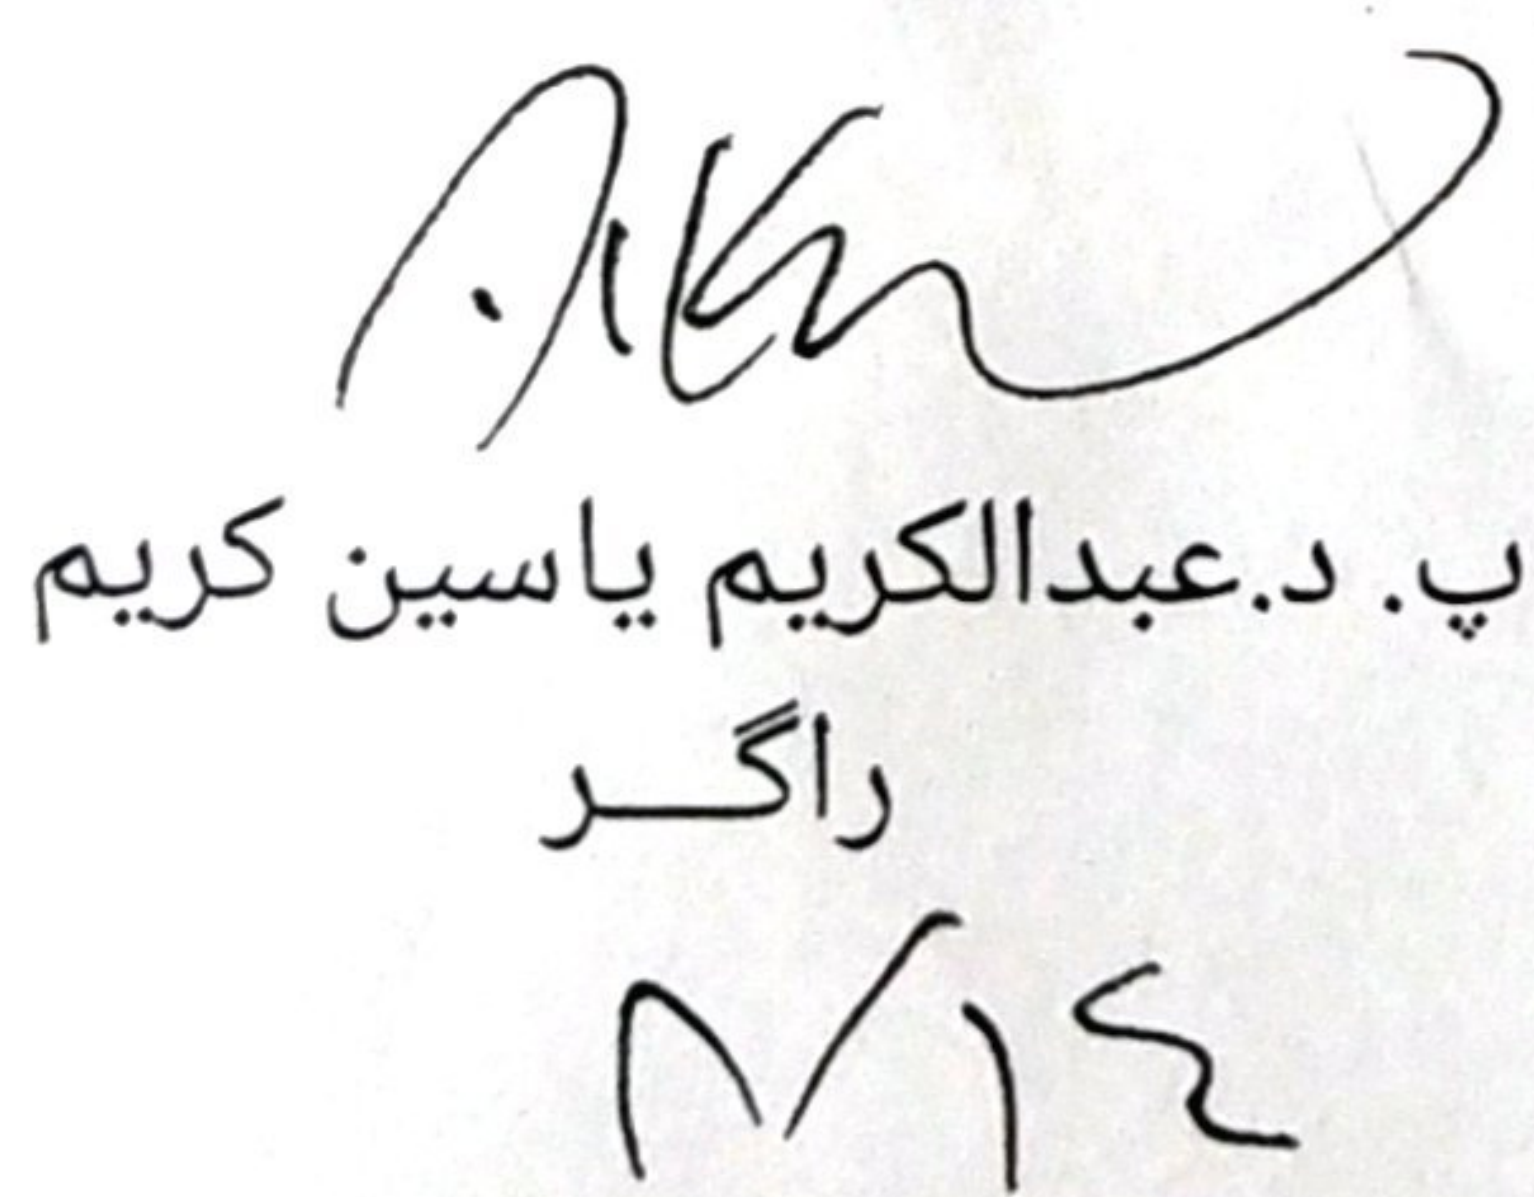 پ. د.عبدالكريم ياسين كريم
راگــر